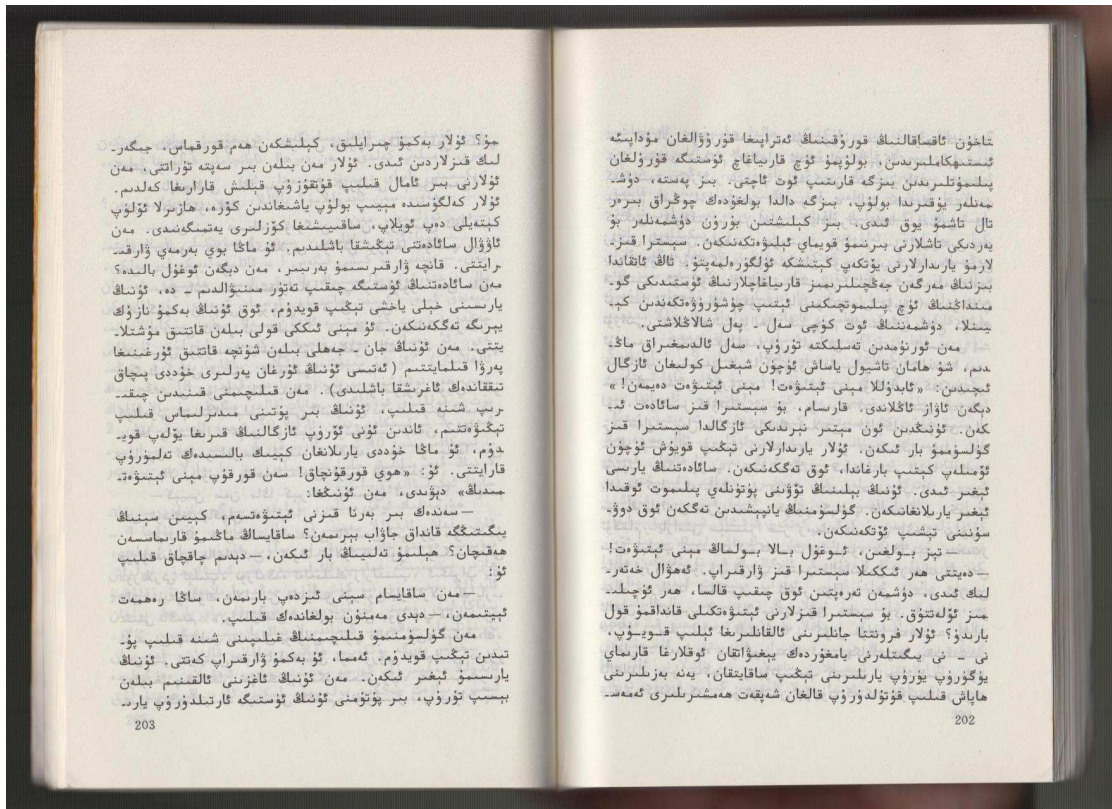 تاخۇن ئاقساقالنىڭ قورۇقىنىڭ ئەتراپىغا قۇرۇۋالغان مۇداپىئە
ئىستىھكاملىرىدىن، بولۇپمۇ ئۈچ قارىياغاچ ئۈستىگە قۇرۇلغان
پىلىمۇتلىرىدىن بىزگە قارىتىپ ئوت ئاچتى. بىز پەستە، دۈشـ
مەنلەر يۇقىرىدا بولۇپ، بىزگە دالدا بولغۇدەك چوڭراق بىرەر
تال تاشمۇ يوق ئىدى. بىز كېلىشتىن بۇرۇن دۈشمەنلەر بۇ
يەردىكى تاشلارنى بىرنىمۇ قويماي ئېلىۋەتكەنىكەن. سېسترا قىزـ
لارمۇ يارىدارلارنى يۆتكەپ كېتىشكە ئۈلگۈرەلمەپتۇ. تاڭ ئاتقاندا
بىزنىڭ مەرگەن جەڭچىلىرىمىز قارىياغاچلارنىڭ ئۈستىدىكى گوـ
مىنداڭنىڭ ئۈچ پىلىموتچىكىنى ئېتىپ چۈشۈرۈۋەتكەندىن كېـ
يىنلا، دۈشمەننىڭ ئوت كۈچى سەل ـ پەل شالاڭلاشتى.
مەن ئورنۇمدىن تەسلىكتە تۇرۇپ، سەل ئالدىمغىراق ماڭـ
دىم، شۇ ھامان تاشيول ياساش ئۈچۈن شېغىل كولىغان ئازگال
ئىچىدىن: «ئابدۇللا مېنى ئېتىۋەت! مېنى ئېتىۋەت دەيمەن!»
دېگەن ئاۋاز ئاڭلاندى. قارىسام، بۇ سېسترا قىز سائادەت ئىـ
كەن. ئۇنىڭدىن ئون مېتىر نېرىدىكى ئازگالدا سېسترا قىز
گۈلسۈممۇ بار ئىكەن. ئۇلار يارىدارلارنى تېڭىپ قويۇش ئۈچۈن
ئۆمىلەپ كېتىپ بارغاندا، ئوق تەگكەنىكەن. سائادەتنىڭ يارىسى
ئېغىر ئىدى. ئۇنىڭ بېلىنىڭ تۆۋىنى پۈتۈنلەي پىلىموت ئوقىدا
ئېغىر يارىلانغانىكەن. گۈلسۈمنىڭ يانپېشىدىن تەگكەن ئوق دوۋـ
سۇنىنى تېشىپ ئۆتكەنىكەن.
— تېز بولغىن، ئوغۇل بالا بولساڭ مېنى ئېتىۋەت!
— دەيتتى ھەر ئىككىلا سېسترا قىز ۋارقىراپ. ئەھۋال خەتەرـ
لىك ئىدى، دۈشمەن تەرەپتىن ئوق چىقىپ قالسا، ھەر ئۈچىلىـ
مىز ئۆلەتتۇق. بۇ سېسترا قىزلارنى ئېتىۋەتكىلى قانداقمۇ قول
بارىدۇ؟ ئۇلار فرونتتا جانلىرىنى ئالقانلىرىغا ئېلىپ قويۇپ،
نى ـ نى يىگىتلەرنى يامغۇردەك يېغىۋاتقان ئوقلارغا قارىماي
يۈگۈرۈپ يۈرۈپ يارىلىرىنى تېڭىپ ساقايتقان، يەنە بەزىلىرىنى
ھاپاش قىلىپ قۇتۇلدۇرۇپ قالغان شەپقەت ھەمشىرىلىرى ئەمەسـ
202
مۇ؟ ئۇلار بەكمۇ چىرايلىق، كېلىشكەن ھەم قورقماس، جىگەرـ
لىك قىزلاردىن ئىدى. ئۇلار مەن بىلەن بىر سەپتە تۇراتتى، مەن
ئۇلارنى بىر ئامال قىلىپ قۇتقۇزۇپ قېلىش قارارىغا كەلدىم.
ئۇلار كەلگۈسىدە مېيىپ بولۇپ ياشىغاندىن كۆرە، ھازىرلا ئۆلۈپ
كېتەيلى دەپ ئويلاپ، ساقىيىشىغا كۆزلىرى يەتمىگەنىدى. مەن
ئاۋۋال سائادەتنى تېڭىشقا باشلىدىم. ئۇ ماڭا بوي بەرمەي ۋارقىـ
رايتتى. قانچە ۋارقىرىسىمۇ بەرىبىر، مەن دېگەن ئوغۇل بالىدە؟
مەن سائادەتنىڭ ئۈستىگە چىقىپ تەتۈر مىنىۋالدىم ـ دە، ئۇنىڭ
يارىسىنى خېلى ياخشى تېڭىپ قويدۇم، ئوق ئۇنىڭ بەكمۇ نازۇك
يېرىگە تەگكەنىكەن. ئۇ مېنى ئىككى قولى بىلەن قاتتىق مۇشتلاـ
يتتى. مەن ئۇنىڭ جان ـ جەھلى بىلەن شۇنچە قاتتىق ئۇرغىنىغا
پەرۋا قىلمايتتىم (ئەتىسى ئۇنىڭ ئۇرغان يەرلىرى خۇددى پىچاق
تىققاندەك ئاغرىشقا باشلىدى). مەن قىلىچىمنى قىنىدىن چىقىـ
رىپ شىنە قىلىپ، ئۇنىڭ بىر پۇتىنى مىدىرلىماس قىلىپ
تېڭىۋەتتىم، ئاندىن ئۇنى ئۆرۈپ ئازگالنىڭ قىرىغا يۆلەپ قويـ
دۇم، ئۇ ماڭا خۇددى يارىلانغان كېيىك بالىسىدەك تەلمۈرۈپ
قارايتتى. ئۇ: «ھوي قورقۇنچاق! سەن قورقۇپ مېنى ئېتىۋەتـ
مىدىڭ» دېۋىدى، مەن ئۇنىڭغا:
— سەندەك بىر بەرنا قىزنى ئېتىۋەتسەم، كېيىن سېنىڭ
يىگىتىڭگە قانداق جاۋاب بېرىمەن؟ ساقايساڭ ماڭىمۇ قارىماسسەن
ھەقىچان؟ ھېلىمۇ تەلىيىڭ بار ئىكەن، — دېدىم چاقچاق قىلىپ
ئۇ:
— مەن ساقايسام سېنى ئىزدەپ بارىمەن، ساڭا رەھمەت
ئېيتىمەن، — دېدى مەمنۇن بولغاندەك قىلىپ.
مەن گۈلسۈمنىمۇ قىلىچىمنىڭ غىلىپىنى شىنە قىلىپ پۇـ
تىدىن تېڭىپ قويدۇم. ئەمما، ئۇ بەكمۇ ۋارقىراپ كەتتى. ئۇنىڭ
يارىسىمۇ ئېغىر ئىكەن. مەن ئۇنىڭ ئاغزىنى ئالقىنىم بىلەن
بېسىپ تۇرۇپ، بىر پۇتۇمنى ئۇنىڭ ئۈستىگە ئارتىلدۇرۇپ يارىـ
203